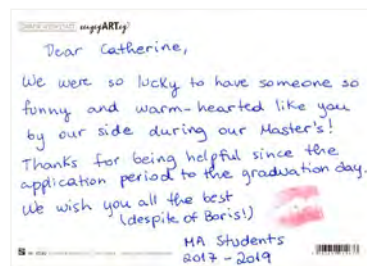 enjoyARTegg
Dear Catherine,
We were so lucky to have someone so
funny and warm-hearted like you
by our side during our Master's!
Thanks for being helpful since the
application period to the graduation day.
We wish you all the best
(despite of Boris!)
MA Students
2017-2019